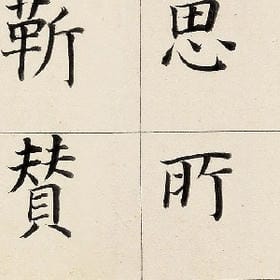 思所
靳賛